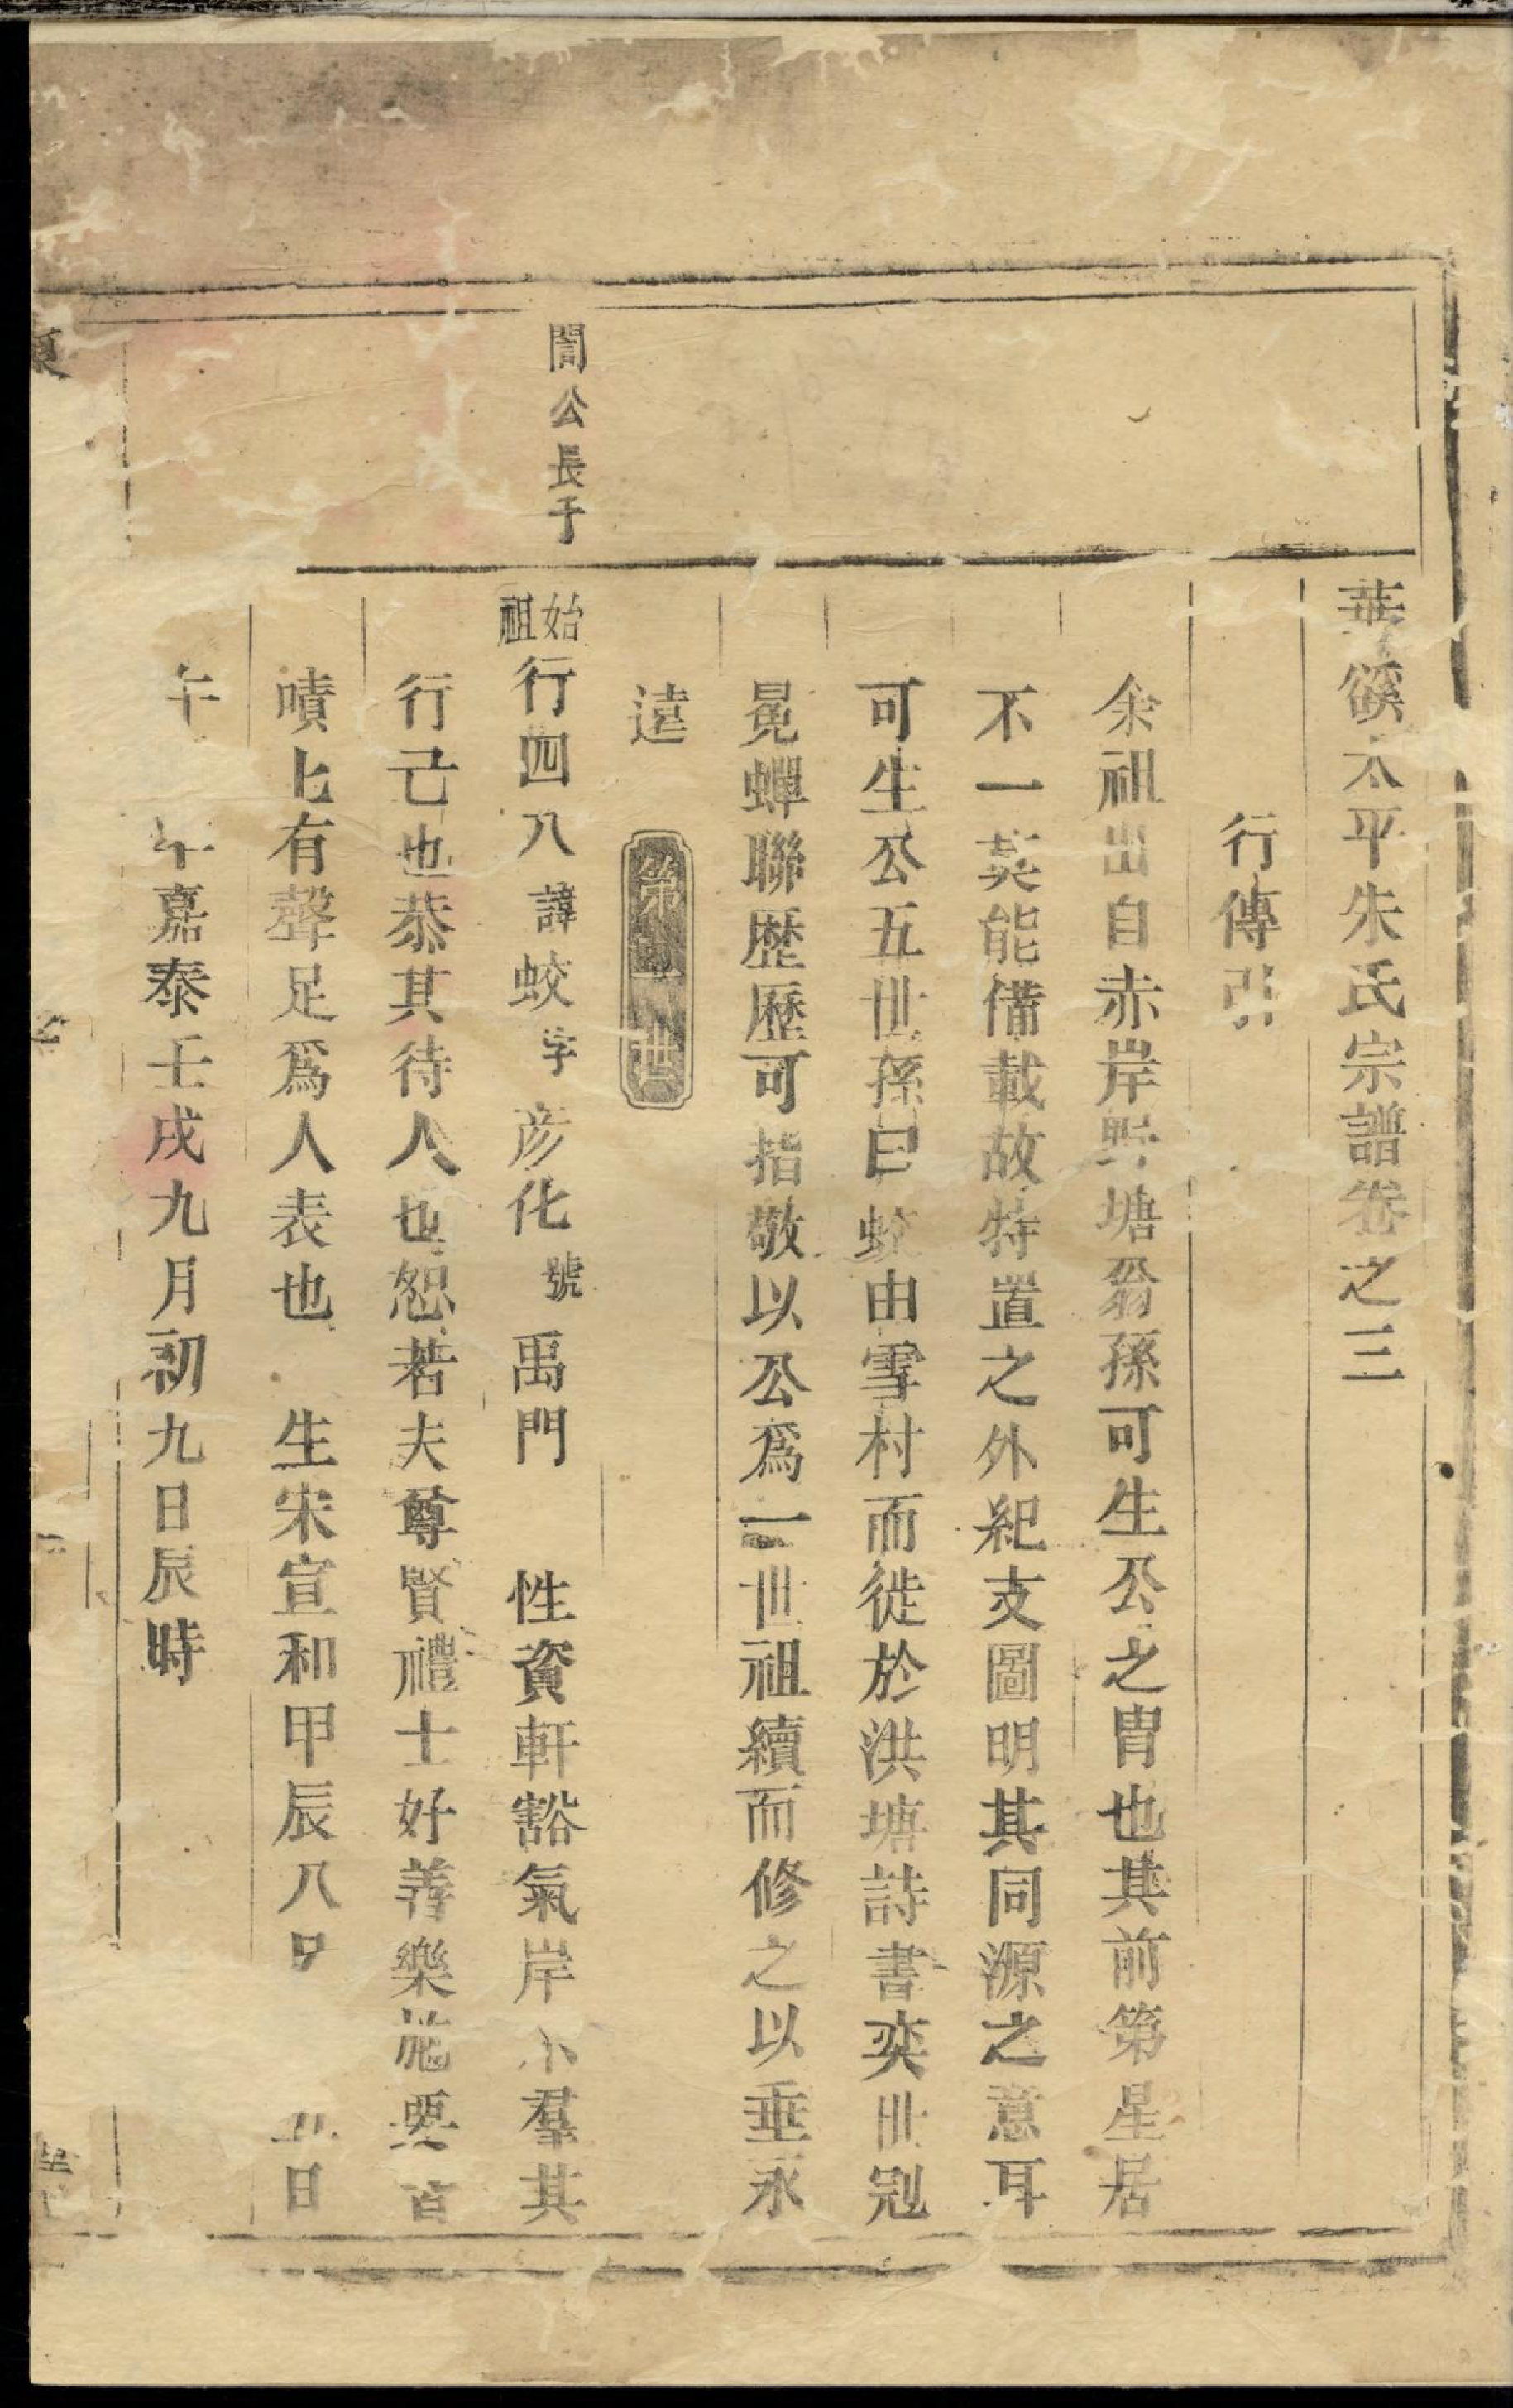 華谿太平朱氏宗譜卷之三
行傳引
余祖出自赤岸野塘翁孫可生公之胄也其前第星居
不一莫能備載故特置之外紀支圖明其同源之意耳
可生公五世孫曰蛟由雪村而徙於洪塘詩書奕世冠
冕蟬聯歷歷可指敬以公爲一世祖續而修之以垂永
遠
第一世
誾公長子
始祖行四八諱蛟字彦化號禹門 性資軒豁氣岸不羣其
行己也恭其待人也恕若夫尊賢禮士好善樂施
嘖上有聲足爲人表也 生宋宣和甲辰八 日
午 嘉泰壬戌九月初九日辰時